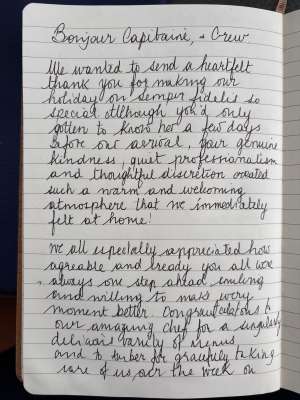 Bonjour Capitaine, + Crew
We wanted to send a heartfelt
thank you for making our
holiday on semper fidelis so
special although you'd only
gotten to know her a few days
before our arrival, your genuine
kindness, quiet professionalism
and thoughtful discretion created
such a warm and welcoming
atmosphere that we immediately
felt at home!
We all especially appreciated how
agreable and ready you all were
always one step ahead smiling
and willing to make every
moment better. Congratulations to
our amazing chef for a singularly
delicious variety of menus
and to for gracefully taking
care of us, over the week on